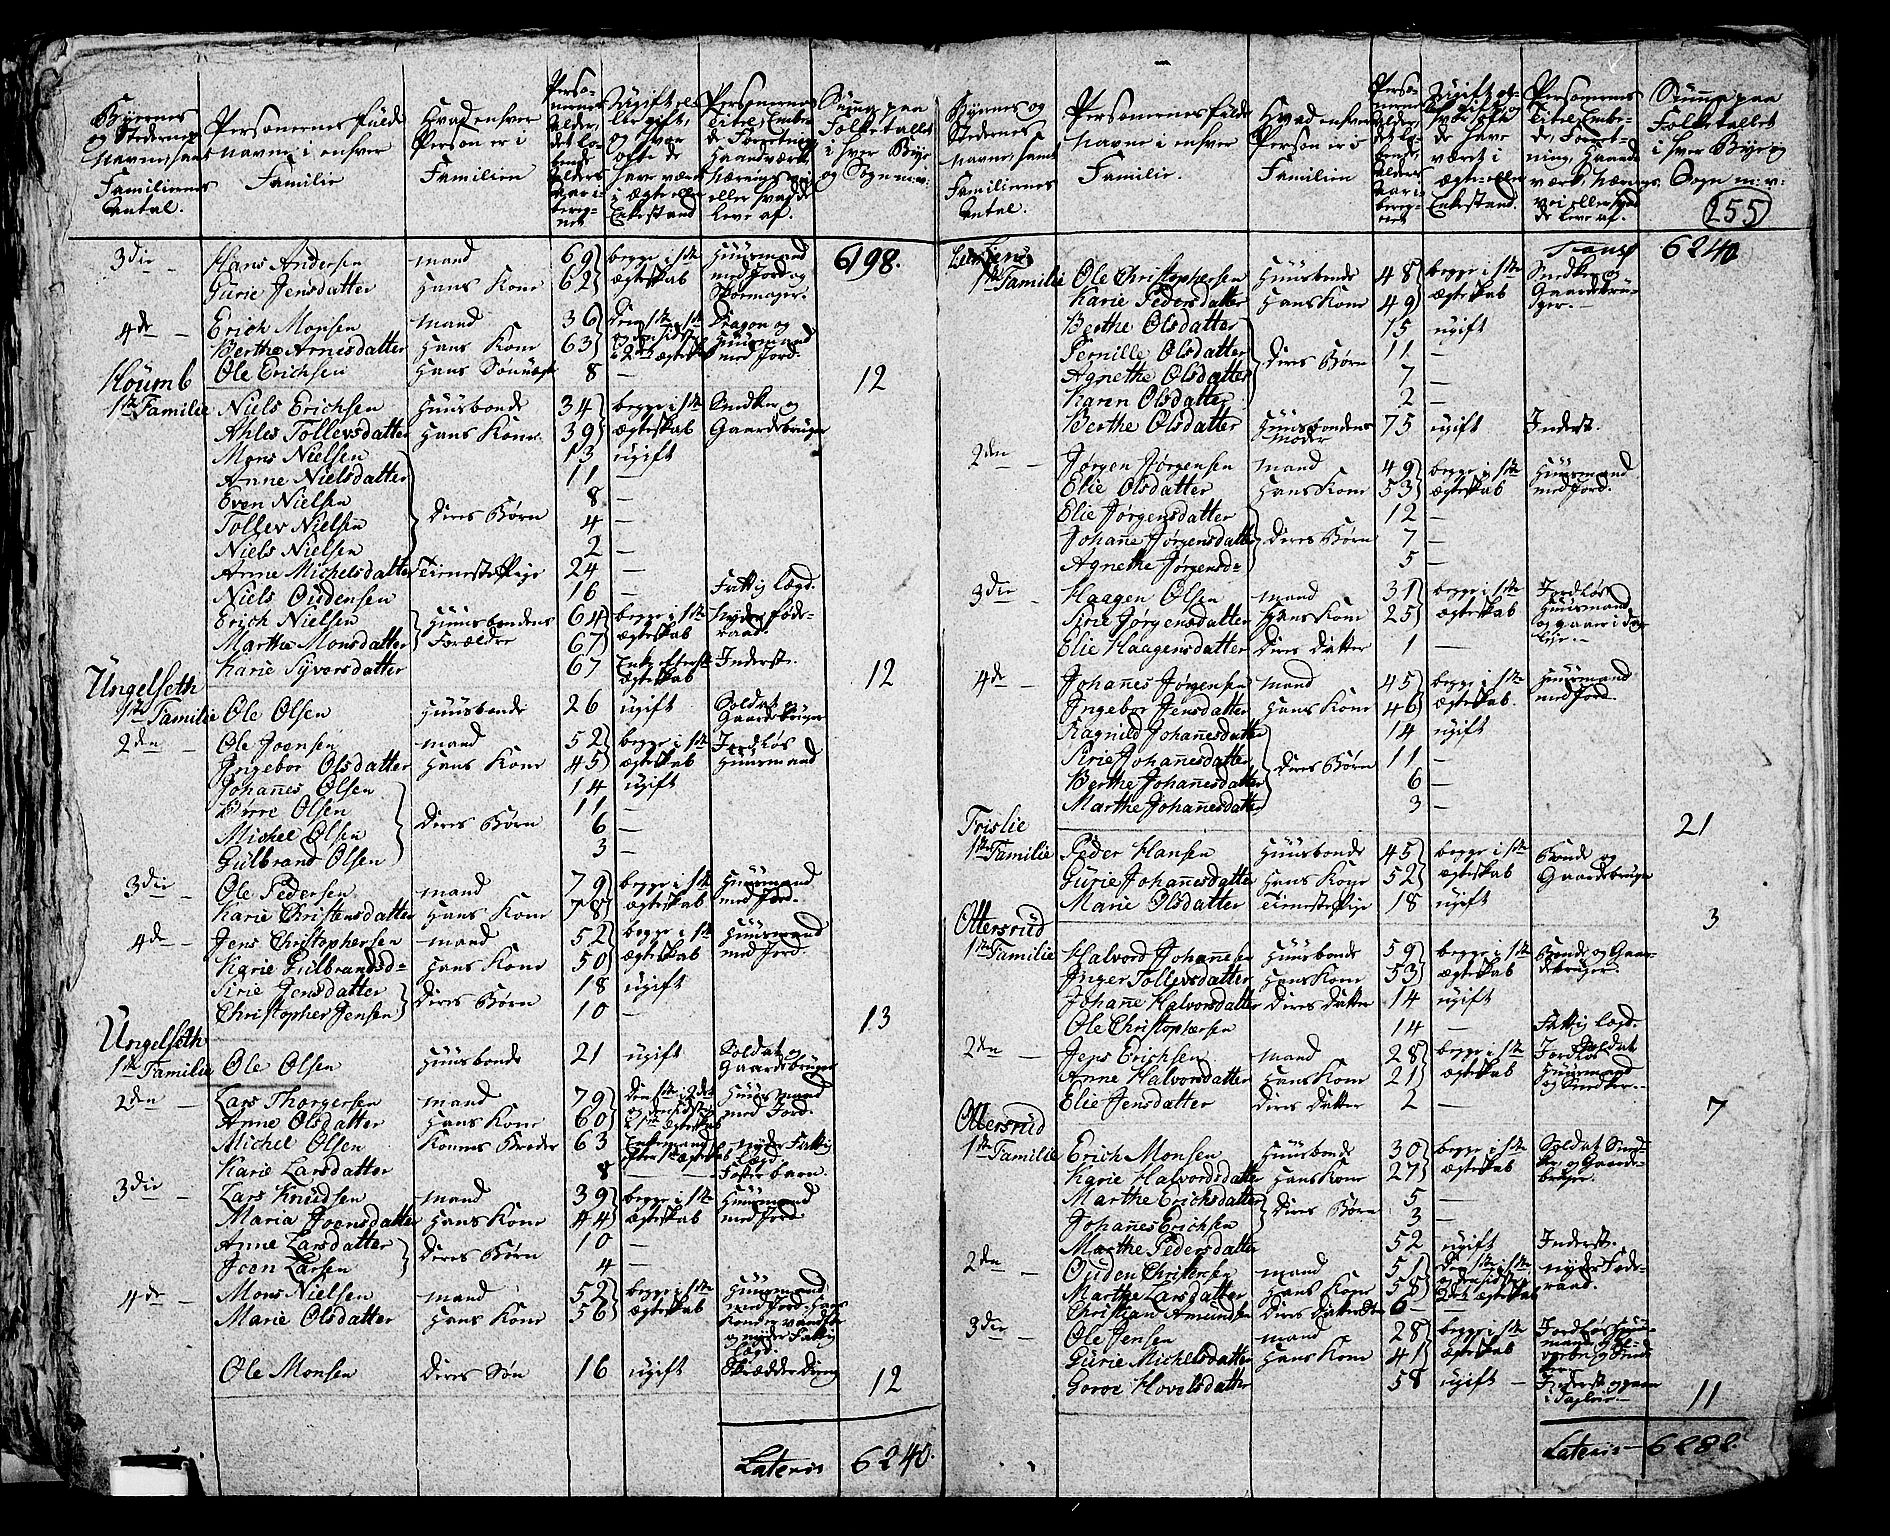 Byernes og Stedernes Navne, samt Familiernes Antal.
Personernes fulde Navne i enhver Familie
Hvad enhver Person er i Familien
Personernes Alder, det løbende Alders Aar iberegnet
Ugift eller gift, og hvor ofte de have været i ægte eller Enkestand
Personernes Titel, Embede, Forretning, Haandværk, Nærings vei eller hvad de leve af.
Summa paa Folketallet i hver Bye og Sogn m: v:
3die Hans Andersen mand 69 begge i 1ste Huusmand 6198.
Gurie Jensdatter Hans Kone 62 ægteskab med Jord og Skomager.
4de Erich Monsen mand 36 Dragon og
Berthe Arnesdatter Hans Kone 63 Huusmand med Jord.
Ole Erichsen Hans Søn 8 — 12
Houmb
1ste Familie Niels Erichsen Huusbonde 34 begge i 1ste Snedker og
Ahles Tollevsdatter Hans Kone 39 ægteskab Gaardebruger
Mons Nielsen 13 ugift
Anne Nielsdatter 11 —
Even Nielsen 8 —
Tollev Nielsen Deres Børn 4 —
Niels Nielsen 2 —
Anne Michelsdatter Tienestepige 24 —
Niels Oudensen 16 — Fattig lægd.
Erich Nielsen Huusbondens 64 begge i 1ste Nyder Føde-
Marthe Monsdatter Forældre 67 ægteskab raad.
Karie Syversdatter 67 Enke efter 1ste ægteskab Inderst. 12
Ungelseth
1ste Familie Ole Olsen Huusbonde 26 ugift Soldat og Gaardebruger
2den Ole Joensen mand 52 begge i 1ste Jordløs
Ingebor Olsdatter Hans Kone 45 ægteskab Huusmand
Johannes Olsen 14 ugift
Børre Olsen 11 —
Michel Olsen Deres Børn 6 —
Gulbrand Olsen 3 —
3die Ole Pedersen mand 79 begge i 1ste Huusmand
Karie Christensdatter Hans Kone 78 ægteskab med Jord.
4de Jens Christophersen mand 52 begge i 1ste Huusmand
Karie Gulbrandsd= Hans Kone 50 ægteskab med Jord.
Sirie Jensdatter 18 ugift
Christopher Jensen Deres Børn 10 — 13
Ungelseth
1ste Familie Ole Olsen Huusbonde 21 ugift Soldat og Gaardebruger
2den Lars Thorgersen mand 79 Huusmand
Anne Olsdatter Hans Kone 60 med Jord.
Michel Olsen Konens Broder 63 Enkemand efter 1ste ægteskab nyder Fattig Lægd.
Karie Larsdatter 8 — Fosterbarn.
3die Lars Knudsen mand 39 begge i 1ste Huusmand
Maria Joensdatter Hans Kone 44 ægteskab med Jord.
Anne Larsdatter 10 —
Joen Larsen Deres Børn 4 —
4de Mons Nielsen mand 52 begge i 1ste Huusmand
Marie Olsdatter Hans Kone 56 ægteskab med Jord. og nyder Fattig Lægd.
Ole Monsen Deres Søn 16 ugift Skrædderdreng 12
Lateris 6240.
Byernes og Stedernes Navne, samt Familiernes Antal.
Personernes fulde Navne i enhver Familie.
Hvad enhver Person er i Familien
Personernes Alder, det løbende Alders Aar iberegnet
Ugift eller gift, og hvor ofte de have været i ægte- eller Enkestand.
Personernes Titel, Embede, Forretning, Haandværk, Nærings vei eller hvad de leve af.
Summa paa Folketallet i hver Bye og Sogn m: v:
255
Transp 6240
1ste Familie Ole Christophersen Huusbonde 48 begge i 1ste Snedker og
Karie Pedersdatter Hans Kone 49 ægteskab Gaardebruger
Berthe Olsdatter 15 ugift
Pernille Olsdatter 11 —
Agnethe Olsdatter Deres Børn 7 —
Karen Olsdatter 2 —
Berthe Olsdatter Huusbondens Moder 75 ugift Inderst.
2den Jørgen Jørgensen mand 49 begge i 1ste Huusmand
Elie Olsdatter Hans Kone 53 ægteskab med Jord.
Elie Jørgensdatter 12 —
Johanne Jørgensdatter Deres Børn 7 —
Agnethe Jørgensd= 5 —
3die Haagen Olsen mand 31 begge i 1ste Jordløs
Sirie Jørgensdatter Hans Kone 25 ægteskab Huusmand
Elie Haagensdatter Deres Datter 1 — og gaaer i Dagleje.
4de Johannes Jørgensen mand 45 begge i 1ste Huusmand
Ingebor Jensdatter Hans Kone 46 ægteskab. med Jord.
Ragnild Johannesdatter 14 ugift
Sirie Johannesdatter 11 —
Berthe Johannesdatter Deres Børn 6 —
Marthe Johannesdatter 3 — 21
Trislie
1ste Familie Peder Hansen Huusbonde 45 begge i 1ste Bonde og
Gurie Johannesdatter Hans Kone 52 ægteskab Gaardebruger
Marie Olsdatter Tienestepige 18 ugift 3
Ottersrud
1ste Familie Halvord Johannesen Huusbonde 59 begge i 1ste Bonde og Gaar-
Inger Tollevsdatter Hans Kone 53 ægteskab debruger.
Johanne Halvorsdatter Deres Datter 14 ugift
Ole Christophersen 14 — Fattig lægd.
2den Jens Erichsen mand 28 begge i 1ste Jordløs Soldat
Anne Halvorsdatter Hans Kone 21 ægteskab Huusmand og Snedker.
Elie Jensdatter Deres Datter 2 — 7
Ottersrud
1ste Familie Erich Monsen Huusbonde 30 begge i 1ste Soldat Sned-
Karie Halvordsdatter Hans Kone 27 ægteskab ker og Gaardebruger.
Marthe Erichsdatter 5 —
Johannes Erichsen Deres Børn 3 —
Marthe Pedersdatter 52 ugift Inderst.
2den Ouden Christensen mand 51 nyder Føde-
Marthe Larsdatter Hans Kone 58 raad.
Christian Amundsen 6 —
3die Ole Jensen mand 28 begge i 1ste Jordløs Huus-
Gurie Michelsdatter Hans Kone 41 ægteskab
Goroe Hovelsdatter 58 ugift Inderst 11
Lateris 6282.